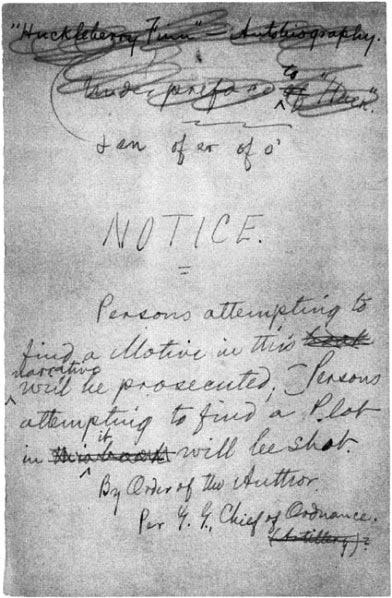 "Huckleberry Finn" — Autobiography.
Under preface to of "Huck".
NOTICE.
Persons attempting to
find a Motive in this book
narrative
will be prosecuted; Persons
attempting to find a Plot
in this book it will be shot.
By Order of the Author
Per G. G., Chief of Ordnance.
(Artillery)?